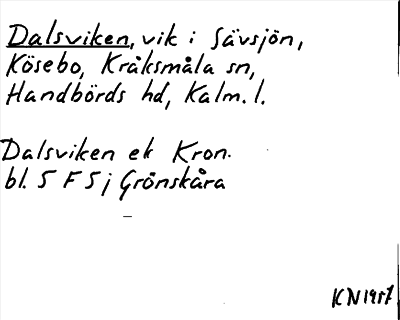 Dalsviken, vik i Sävsjön,
Kösebo, Kråksmåla sn,
Handbörds hd, Kalm. l.
Dalsviken ek Kron.
bl. 5 F 5 j Grönskåra
KN 1957